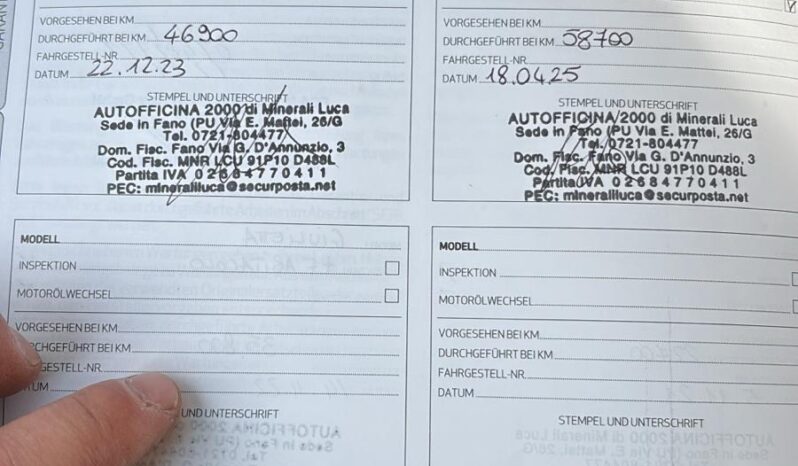 VORGESEHEN BEI KM
DURCHGEFÜHRT BEI KM 46900
FAHRGESTELL-NR.
DATUM 22.12.23
STEMPEL UND UNTERSCHRIFT
AUTOFFICINA 2000 di Minerali Luca
Sede in Fano (PU Via E. Mattei, 26/G
Tel. 0721-804477
Dom. Fisc. Fano Via G. D'Annunzio, 3
Cod. Fisc. MNR LCU 91P10 D488L
Partita IVA 02684770411
PEC: mineraliluca@securposta.net
VORGESEHEN BEI KM
DURCHGEFÜHRT BEI KM 58700
FAHRGESTELL-NR.
DATUM 18.04.25
STEMPEL UND UNTERSCHRIFT
AUTOFFICINA 2000 di Minerali Luca
Sede in Fano (PU Via E. Mattei, 26/G
Tel. 0721-804477
Dom. Fisc. Fano Via G. D'Annunzio, 3
Cod. Fisc. MNR LCU 91P10 D488L
Partita IVA 02684770411
PEC: mineraliluca@securposta.net
MODELL
INSPEKTION
MOTORÖLWECHSEL
VORGESEHEN BEI KM
CHGEFÜHRT BEI KM
GESTELL-NR.
UM
UND UNTERSCHRIFT
MODELL
INSPEKTION
MOTORÖLWECHSEL
VORGESEHEN BEI KM
DURCHGEFÜHRT BEI KM
FAHRGESTELL-NR.
DATUM
STEMPEL UND UNTERSCHRIFT